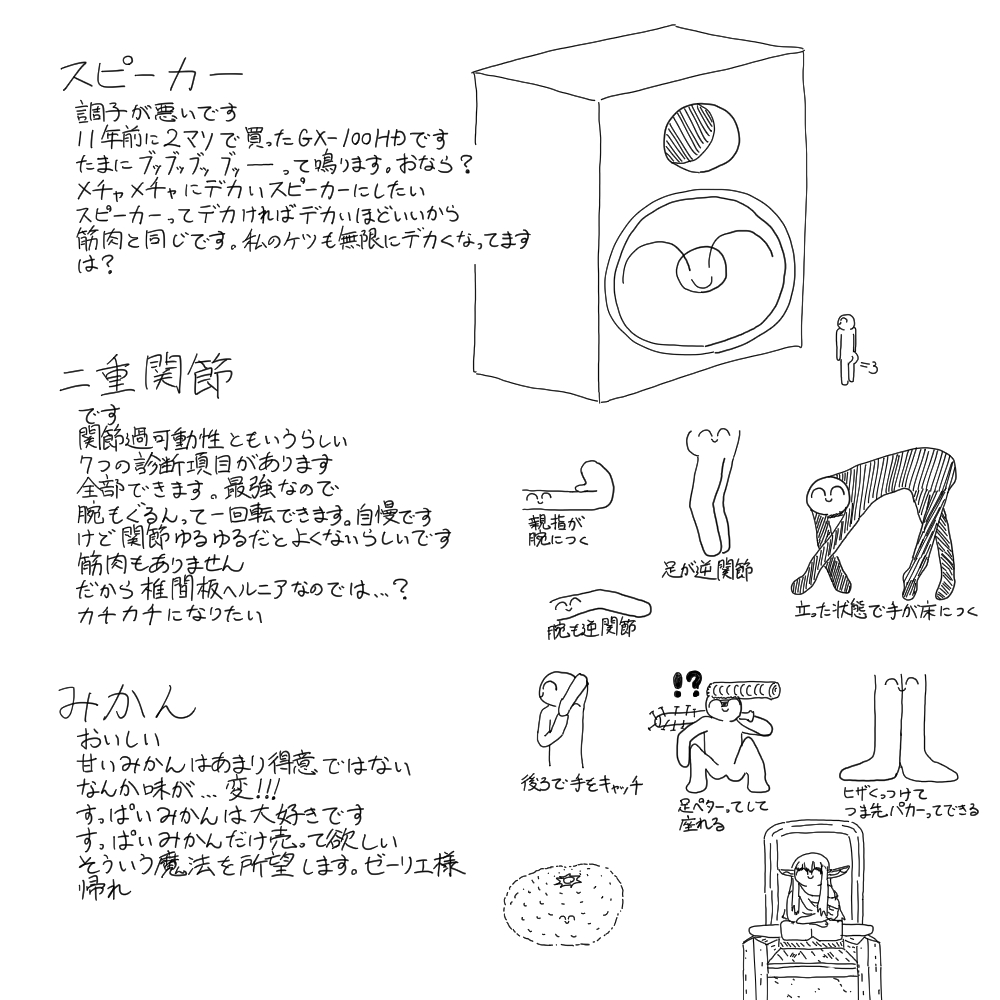 スピーカー
調子が悪いです
11年前に2マソで買ったGX-100HDです
たまにブッブッブッブッーって鳴ります。おなら？
メチャメチャにデカいスピーカーにしたい
スピーカーってデカければデカいほどいいから
筋肉と同じです。私のケツも無限にデカくなってます
は？
=3
二重関節
です
関節過可動性ともいうらしい
7つの診断項目があります
全部できます。最強なので
腕もぐるんって一回転できます。自慢です
けど関節ゆるゆるだとよくないらしいです
筋肉もありません
だから椎間板ヘルニアなのでは…？
カチカチになりたい
親指が
腕につく
足が逆関節
立った状態で手が床につく
腕も逆関節
後ろで手をキャッチ
!?
足ペターってして
座れる
ヒザくっつけて
つま先パカーってできる
みかん
おいしい
甘いみかんはあまり得意ではない
なんか味が…変!!!
すっぱいみかんは大好きです
すっぱいみかんだけ売って欲しい
そういう魔法を所望します。ゼーリエ様
帰れ